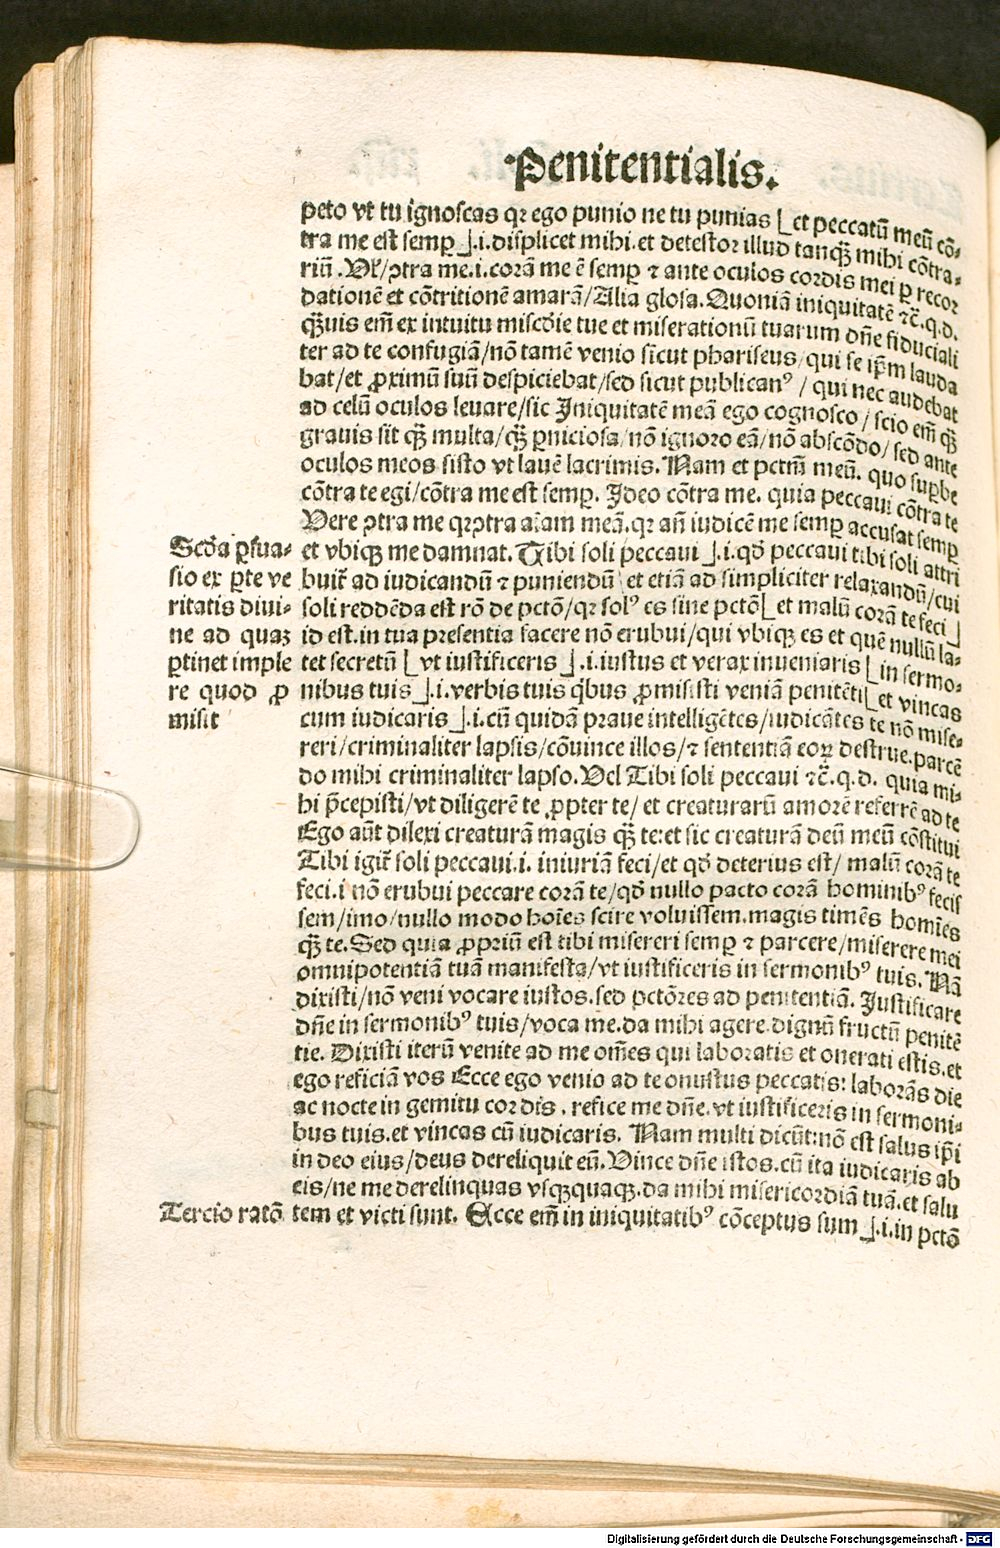 Penitentialis.
peto vt tu ignoscas qꝛ ego punio ne tu punias ⌊et peccatū meū cō-
tra me est semꝑ⌋.i.displicet mihi.et detestor illud tanqꝫ̄ mihi cōtra-
riū.Vl'/ꝯtra me.i.corā me ē semꝑ ⁊ ante oculos cordis mei ꝑ recor
dationē et cōtritionē amarā/Alia glosa.Quoniā iniquitatē ⁊c̄.q.d.
qꝫ̄uis em̄ ex intuitu miscd̄ie tue et miserationū tuarum dn̄e fiduciali
ter ad te confugiā/nō tamē venio sicut phariseus/qui se ip̄m lauda
bat/et ꝓximū suū despiciebat/sed sicut publicanꝰ/qui nec audebat
ad celū oculos leuare/sic Iniquitatē meā ego cognosco/scio em̄ qꝫ̄
grauis sit qꝫ̄ multa/qꝫ̄ ꝑniciosa/nō ignoro eā/nō abscōdo/sed ante
oculos meos sisto vt lauē lacrimis.Nam et pctm̄ meū. quo suꝑbe
cōtra te egi/cōtra me est semꝑ. Ideo cōtra me. quia peccaui cōtra te
Vere ꝯtra me qꝛ ꝯtra aīam meā.qꝛ añ iudicē me semꝑ accusat semꝑ
et vbiqꝫ me damnat. Tibi soli peccaui⌋.i.qd̄ peccaui tibi soli attri
buit̄ ad iudicandū ⁊ puniendū/et etiā ad simpliciter relaxandū/cui
soli reddēda est rō de pctō/qꝛ solꝰ es sine pctō⌊et malū corā te feci⌋
id est.in tua presentia facere nō erubui/qui vbiqꝫ es et quē nullū la-
tet secretū ⌊vt iustificeris⌋.i.iustus et verax inueniaris ⌊in sermo-
nibus tuis⌋.i.verbis tuis qͥbus ꝓmisisti veniā penitēti⌊et vincas
cum iudicaris⌋.i.cū quidā praue intelligētes/iudicātes te nō mise-
reri/criminaliter lapsis/cōuince illos/⁊ sententiā eoꝝ destrue.parcē
do mihi criminaliter lapso.Vel Tibi soli peccaui ⁊c̄.q.d. quia mi-
hi p̄cepisti/vt diligerē te ꝓpter te/et creaturarū amorē referrē ad te
Ego aūt dilexi creaturā magis qꝫ̄ te:et sic creaturā deū meū cōstitui
Tibi igit̄ soli peccaui.i. iniuriā feci/et qd̄ deterius est/malū corā te
feci.i nō erubui peccare corā te/qd̄ nullo pacto corā hominibꝰ fecis
sem/imo/nullo modo hoīes scire voluissem.magis timēs homīes
qꝫ̄ te.Sed quia ꝓpriū est tibi misereri semꝑ ⁊ parcere/miserere mei
omnipotentiā tuā manifesta/vt iustificeris in sermonibꝰ tuis.Nā
dixisti/nō veni vocare iustos.sed pctōres ad penitentiā. Iustificare
dn̄e in sermonibꝰ tuis/voca me.da mihi agere.dignū fructū penitē
tie. Dixisti iterū venite ad me om̄es qui laboratis et onerati estis.et
ego reficiā vos Ecce ego venio ad te onustus peccatis: laborās die
ac nocte in gemitu cordis. refice me dn̄e.vt iustificeris in sermoni-
bus tuis.et vincas cū iudicaris. Nam multi dicūt:nō est salus ip̄i
in deo eius/deus dereliquit eū.Vince dn̄e istos.cū ita iudicaris ab
eis/ne me derelinquas vsqꝫquaqꝫ.da mihi misericordiā tuā.et salu
tem et victi sunt. Ecce em̄ in iniquitatibꝰ cōceptus sum⌋.i.in pctō
Scd̄a ꝑsua-
sio ex ꝑte ve
ritatis diui-
ne ad quaꝫ
ꝑtinet imple
re quod ꝓ
misit
Tercio ratō
Digitalisierung gefördert durch die Deutsche Forschungsgemeinschaft - DFG